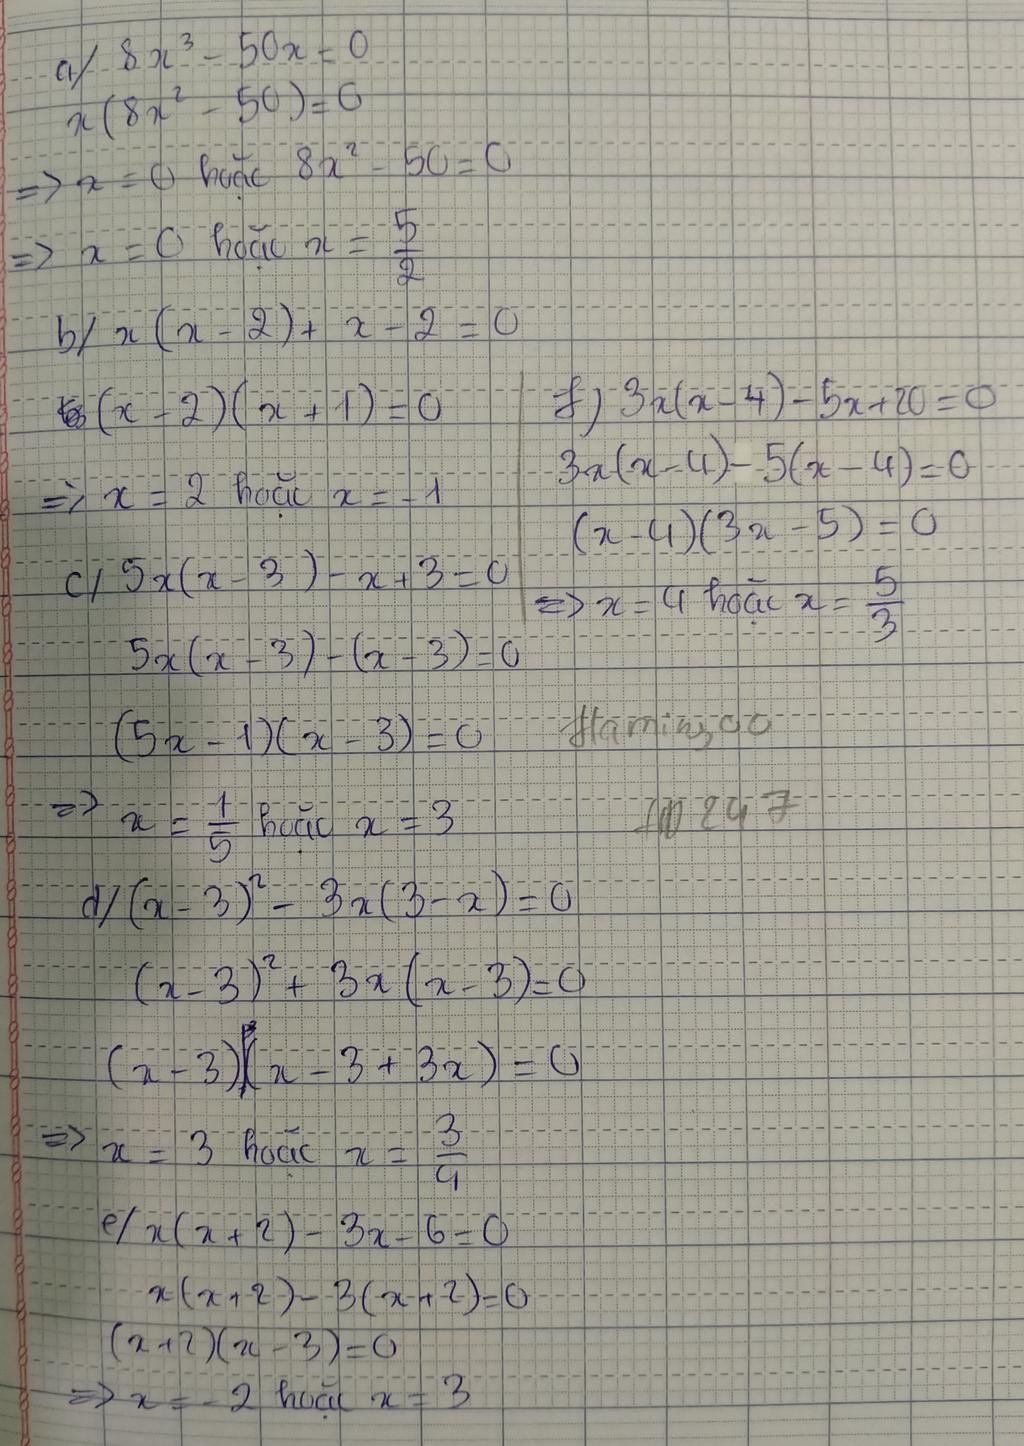 a/ 8x³ - 50x = 0
x(8x² - 50) = 0
=> x = 0 hoặc 8x² - 50 = 0
=> x = 0 hoặc x = 5/2
b/ x(x - 2) + x - 2 = 0
(x - 2)(x + 1) = 0
=> x = 2 hoặc x = -1
c/ 5x(x - 3) - x + 3 = 0
5x(x - 3) - (x - 3) = 0
(5x - 1)(x - 3) = 0
=> x = 1/5 hoặc x = 3
d/ (x - 3)² - 3x(3 - x) = 0
(x - 3)² + 3x(x - 3) = 0
(x - 3)(x - 3 + 3x) = 0
=> x = 3 hoặc x = 3/4
e/ x(x + 2) - 3x - 6 = 0
x(x + 2) - 3(x + 2) = 0
(x + 2)(x - 3) = 0
=> x = -2 hoặc x = 3
f) 3x(x - 4) - 5x + 20 = 0
3x(x - 4) - 5(x - 4) = 0
(x - 4)(3x - 5) = 0
=> x = 4 hoặc x = 5/3
247